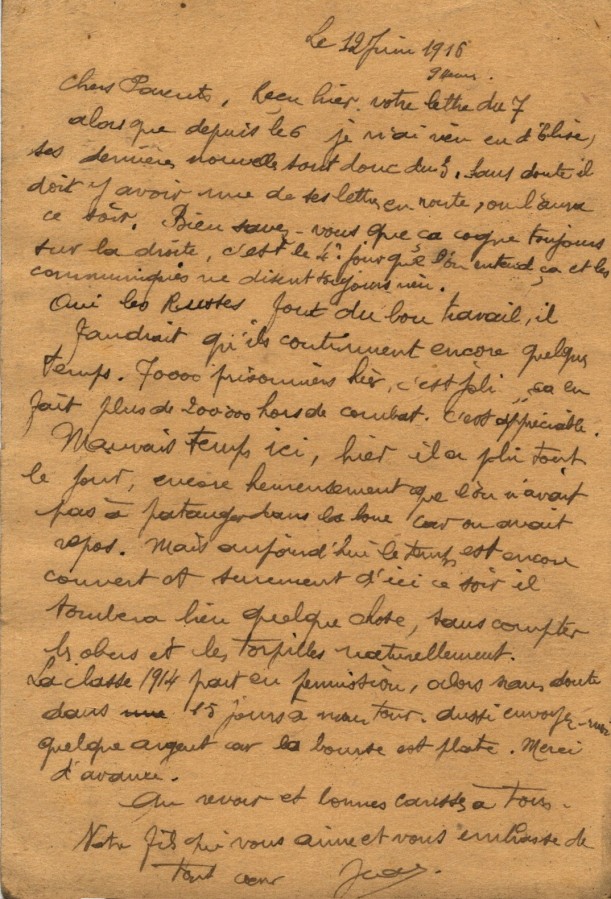 Le 12 Juin 1916
Chers Parents, Reçu hier votre lettre du 7
alors que depuis le 6 je n'ai rien eu d'Elise,
ses dernières nouvelles sont donc du 5. Sans doute il
doit y avoir une de ses lettres en route, on l'aura
ce soir. Bien savez-vous que ça cogne toujours
sur la droite, c'est le 4e jour que l'on entend ça et les
communiqués ne disent toujours rien.
Oui les Russes font du bon travail, il
faudrait qu'ils continuent encore quelque
temps. 70000 prisonniers hier, c'est joli, ça en
fait plus de 200000 hors de combat. C'est appréciable.
Mauvais temps ici, hier il a plu tout
le jour, encore heureusement que l'on n'avait
pas à patauger dans la boue car on avait
repos. Mais aujourd'hui le temps est encore
couvert et surement d'ici ce soir il
tombera bien quelque chose, sans compter
les obus et les torpilles naturellement.
La classe 1914 part en permission, alors sans doute
dans 15 jours à mon tour. Aussi envoyez-moi
quelque argent car la bourse est plate. Merci
d'avance.
Au revoir et bonnes caresses à tous.
Votre fils qui vous aime et vous embrasse de
tout coeur